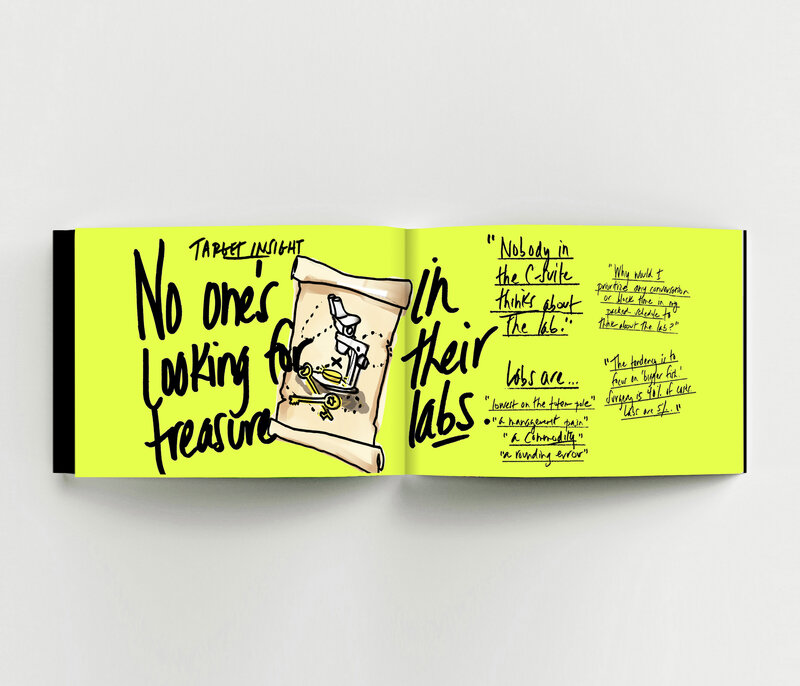 TARGET INSIGHT
No one's
looking for
treasure
in
their
labs.
"Nobody in
the C-suite
thinks about
the lab."
Labs are...
"lowest on the totem pole"
"a management pain"
"a commodity"
"a rounding error"
"Why would I
prioritize any conversation
or block time in my
packed schedule to
think about the lab?"
"The tendency is to
focus on 'bigger fish.'
Surgery is 40% of costs
labs are 5%."